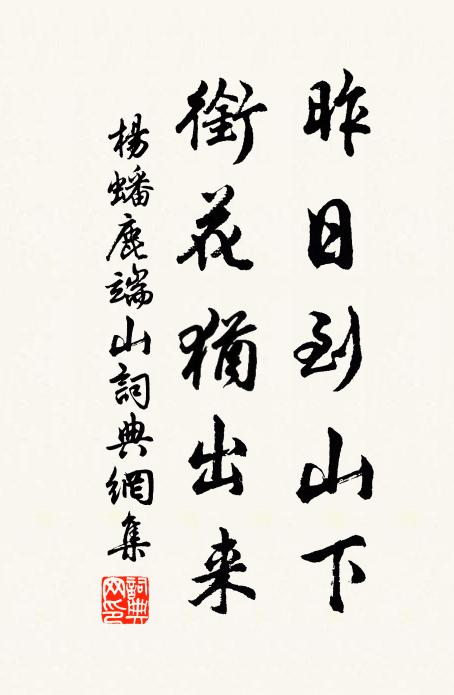 昨日到山下
銜花猶出来
楊蟠鹿端山詞典網集
詞典網印